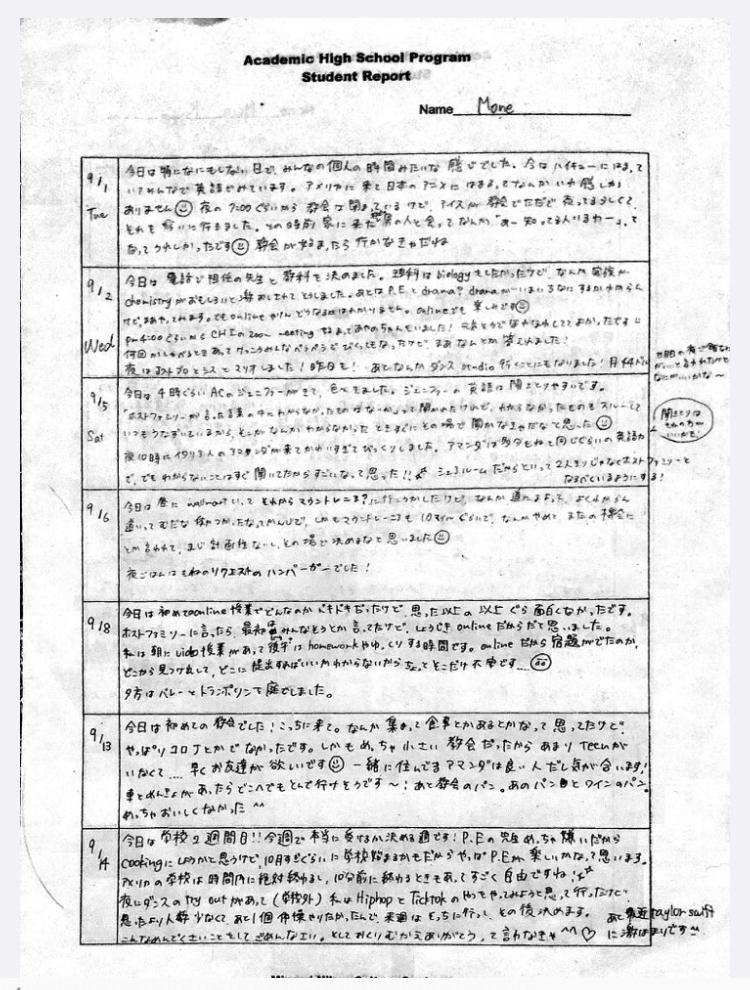 Academic High School Program
Student Report
Name Mone
9/1 Tue
今日は特になにもしない日で、みんなの個人の時間みたいな感じでした。今はハイキューにはまって
いてみんなで英語でみています。アメリカに来て日本のアニメにはまるってなんかいわ感しか
ありません 夜の7:00ぐらいから教会は閉まっているけど、アイスが教会でただで売ってるらしくて
それを買いに行きました。その時前家に来た男の人と会ってなんか「あー知ってる人いるわー」って
なってうれしかったです 教会が始まったら行かなきゃだね
9/2 Wed
今日は電話で担任の先生と教科を決めました。理科はbiologyをしたかったけど、なんか家族が
chemistryがおもしろいと激おしされてそうしました。あとはP.Eとdrama?dramaが
けど、まあやってみます。でもonlineでやりんどうなるのはわかりません。onlineでも楽しみです
pm4:00ぐらいからCHIのzoom meetingするまであやのちゃんもいました!元気そうで よかったです
何回かしゃべるときあってけっこうみんなペラペラでびっくりもなったけど、まあなんとか答えれました!
夜は とマリオしました!昨日も!あとなんかダンスstudio行くことにもなりました!
9/5 Sat
今日は4時ぐらいACのジェニファーがきて、色々きました。ジェニファーの英語は聞きとりやすいです。
ホストファミリーが言った言葉の中にわからなかったものは って聞かれたけれど、わからなかったものもスルーして
いつもうなずいているから、そこがなんかわからなかったときすぐにその場で聞かなきゃだなって思った
夜10時にイタリア人のアマンダが来てかわいすぎてびっくりしました。アマンダは多分もねと同じぐらいの英語力
で、でもわからないことはすぐ聞いてたからすごいなって思った!! シェアルームだからといって2人きりじゃなくホストファミリーと
なるべくいるようにする!
聞きとりは
9/6
今日は昼にwalmartいってそれからマウントレーニアに行こうかしたけど、なんか道にまよった、よくわからん
違っててむだな使つかったなってかんじで、しかもマウントレーニアも10マイルぐらいで、なんかやめて、またの機会に
とか言われて、まじ計画性ないし、その場で決めるなと思いました
夜ごはんはもねのリクエストのハンバーガーでした!
9/8
今日は初めてonline授業でどんなのかドキドキだったけど、思った以上の以上ぐらい面白くなかったです。
ホストファミリーに言ったら、最初はみんなそうとか言ってたけど、しょうじきonlineだからだと思いました。
私は朝にvideo授業があって後半はhomeworkやゆっくりする時間です。onlineだから宿題がでたのか、
どこから見つけ出して、どこに提出すればいいかわからないからちょっとそこだけ不安です....
夕方はバレーとトランポリンを庭でしました。
9/13
今日は初めての教会でした!こっちに来て。なんか集まって食事とかあるとかなって思ってたけど
やっぱりコロナとかでなかったです。しかもめっちゃ小さい教会だったからあまりTeenが
いなくて.... 早くお友達が欲しいです 一緒に住んでるアマンダは良い人だし気が合います!
車とめんきょがあったらどこへでもとんで行けそうです〜!あと教会のパン。あのパンとワインのパン。
めっちゃおいしくなかった ^^
9/14
今日は学校2週間目!!今週で本当に受けるか決める週です!P.Eの先生めっちゃ嫌いだから
cookingにしようかと思うけど、10月すぎぐらいに学校始まるかもだからやっぱP.Eが楽しいかなって思います。
アメリカの学校は時間内に絶対終わるし、10分前に終わるときもあってすごく自由ですね!
夜にダンスのtry outがあって(学校外)私はHiphopとTicktokのやつをやってみようと思って行ったけど
思ったより人数少なくてあと1個体操やりたかったんで、来週はそっちに行って、その後決めます。
あと最近taylor swift
に激はまりです
こんなめんどくさいことをしてごめんなさい。そしておくりむかえありがとう、って言わなきゃ ^^ ♡